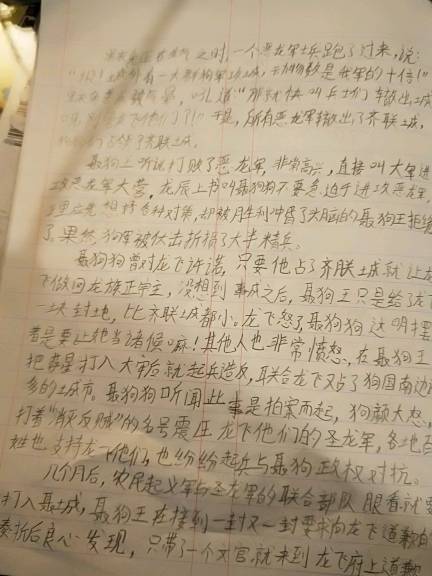 之时,一个恶龙军士兵跑了过来,说:
城外有一大群狗军攻城,动物数是我军的十倍!"
"那就快叫兵士们撤出城
于是,所有恶龙军撤出了齐联城,
了齐联城。
聂狗王听说打败了恶龙军,非常高兴,直接叫大军进
攻恶龙军大营,龙辰上书叫聂狗狗不要急迫于进攻恶龙军,
应先想好各种对策,却被月生利冲昏了头脑的聂狗王拒绝
了。果然,狗军被伏击折损了大半精兵。
聂狗狗曾对龙飞许诺,只要他占了齐联土城就让龙
飞做回龙族正宇主,没想到事成之后,聂狗王只是给龙飞
一块封地,比齐联城都小。龙飞怒了,聂狗狗这明摆
着是要让他当诸侯嘛!其他人也非常愤怒,在聂狗王
把李星打入大牢后就起兵造反,联合龙飞又占了狗国南边
多的土城市。聂狗狗听闻此事是拍案而起,狗颜大怒,
打着"消灭反贼"的名号震压龙飞他们的圣龙军,各地百
姓也支持龙飞他们,也纷纷起兵与聂狗政权对抗。
几个月后,农民起义军与圣龙军的联合部队眼看就要
打入聂土城,聂狗王在接到一封又一封要求向龙飞道歉的
奏折后良心发现,只带了一个文官,就来到龙飞府上道歉